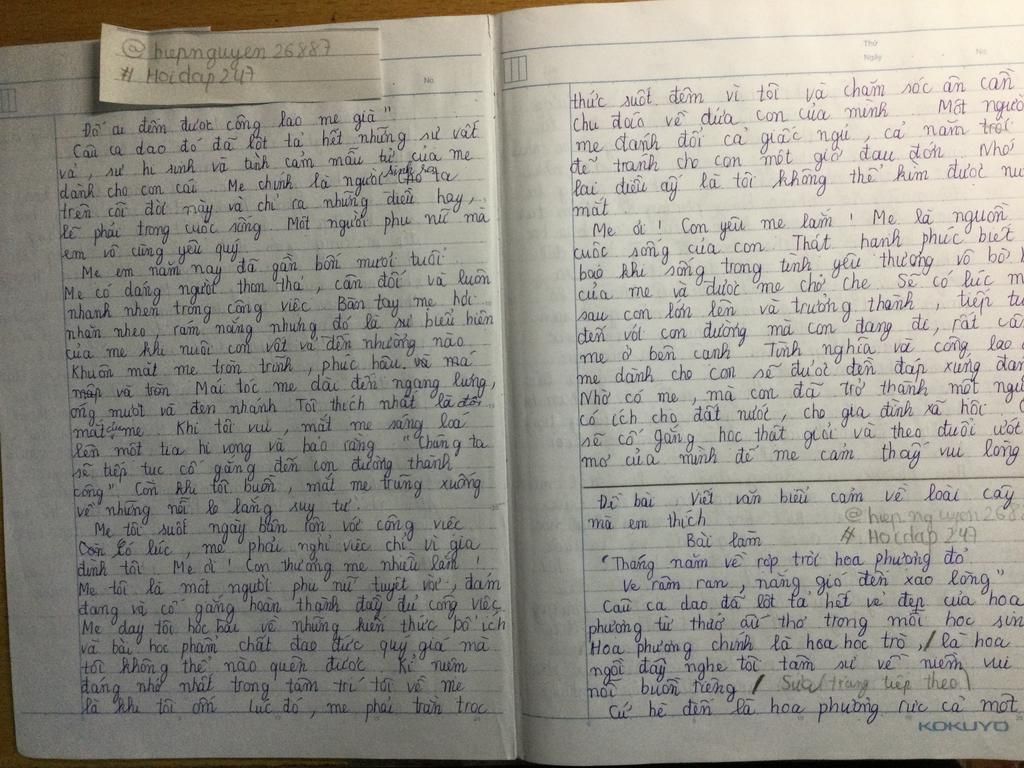 @hiepnguyen26887
# Hoidap247
No.
Đố ai đếm được công lao mẹ già"
Câu ca dao đó đã lột tả hết những sự vất
vả, sự hi sinh và tình cảm mẫu tử của mẹ
dành cho con cái. Mẹ chính là người sinh ra ta
trên cõi đời này và chỉ ra những điều hay,
lẽ phải trong cuộc sống. Một người phụ nữ mà
em vô cùng yêu quý.
Mẹ em năm nay đã gần bốn mươi tuổi.
Mẹ có dáng người thon thả, cân đối và luôn
nhanh nhẹn trong công việc. Bàn tay mẹ hơi
nhăn nheo, rám nắng nhưng đó là sự biểu hiện
của mẹ khi nuôi con vất vả đến nhường nào
Khuôn mặt mẹ tròn trĩnh, phúc hậu và má
mập và tròn. Mái tóc mẹ dài đến ngang lưng,
óng mượt và đen nhánh Tôi thích nhất là đôi
mắt của mẹ. Khi tôi vui, mắt mẹ sáng loá
lên một tia hi vọng và bảo rằng "Chúng ta
sẽ tiếp tục cố gắng đến con đường thành
công". Còn khi tôi buồn, mắt mẹ trùng xuống
về những nỗi lo lắng suy tư.
Mẹ tôi suốt ngày bận rộn với công việc
Còn có lúc, mẹ phải nghỉ việc chỉ vì gia
đình tôi. Mẹ ơi! Con thương mẹ nhiều lắm!
Mẹ tôi là một người phụ nữ tuyệt vời, đảm
đang và cố gắng hoàn thành đầy đủ công việc.
Mẹ dạy tôi học bài về những kiến thức bổ ích
và bài học phẩm chất đạo đức quý giá mà
tôi không thể nào quên được. Kỉ niệm
đáng nhớ nhất trong tâm trí tôi về mẹ
là khi tôi ốm lúc đó, mẹ phải trằn trọc
Thứ
Ngày
No.
thức suốt đêm vì tôi và chăm sóc ân cần
chu đáo về đứa con của mình. Một người
mẹ đánh đổi cả giấc ngủ, cả năm trời
để tránh cho con một giờ đau đớn. Nhớ
lại điều ấy là tôi không thể kìm được nư
mắt.
Mẹ ơi! Con yêu mẹ lắm! Mẹ là nguồn
cuộc sống của con. Thật hạnh phúc biết
bao khi sống trong tình yêu thương vô bờ
của mẹ và được mẹ chở che. Sẽ có lúc
sau con lớn lên và trưởng thành, tiếp tụ
đến với con đường mà con đang đi, rất cầ
mẹ ở bên cạnh. Tình nghĩa và công lao
mẹ dành cho con sẽ được đền đáp xứng đán
Nhờ có mẹ, mà con đã trở thành một ngư
có ích cho đất nước, cho gia đình xã hội.
sẽ cố gắng học thật giỏi và theo đuổi ước
mơ của mình để mẹ cảm thấy vui lòng
Đề bài Viết văn biểu cảm về loài cây
mà em thích
@hiepnguyen268
# Hoidap247
Bài làm
"Tháng năm về rợp trời hoa phượng đỏ
Ve râm ran, nắng gió đến xao lòng"
Câu ca dao đã lột tả hết vẻ đẹp của hoa
phượng từ thuở ấu thơ trong mỗi học sin
Hoa phượng chính là hoa học trò, / là hoa
ngồi đấy nghe tôi tâm sự về niềm vui
nỗi buồn riêng / Sửa (trang tiếp theo)
Cứ hè đến là hoa phượng rực cả một
KOKUYO